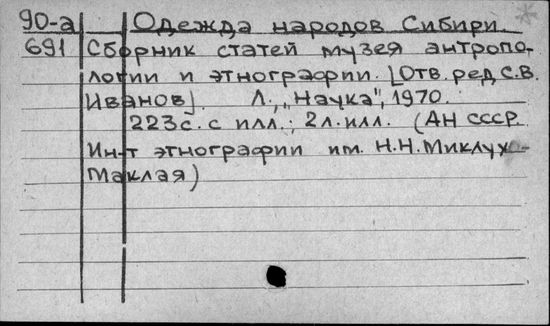 90-а Одежда народов Сибири.
691 Сборник статей музея антропо-
логии и этнографии. [Отв. ред. С.В.
Иванов]. Л., "Наука", 1970.
223с. с илл.; 2л. илл. (АН СССР
Ин-т этнографии им. Н.Н. Миклухо-
Маклая)